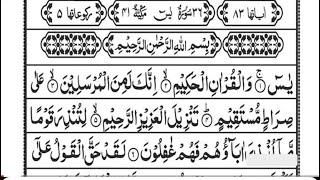 اٰیاتها ۸۳ ۳۶ سُوْرَةُ يٰسٓ مَكِّيَّةٌ ۴۱ رکوعاتها ۵
بِسْمِ اللّٰهِ الرَّحْمٰنِ الرَّحِيْمِ
يٰسٓ ۚ۝۱ وَالْقُرْاٰنِ الْحَكِيْمِ ۙ۝۲ اِنَّكَ لَمِنَ الْمُرْسَلِيْنَ ۙ۝۳ عَلٰى
صِرَاطٍ مُّسْتَقِيْمٍ ؕ۝۴ تَنْزِيْلَ الْعَزِيْزِ الرَّحِيْمِ ۙ۝۵ لِتُنْذِرَ قَوْمًا
مَّاۤ اٰبَآؤُهُمْ فَهُمْ غٰفِلُوْنَ ۝۶ لَقَدْ حَقَّ الْقَوْلُ عَلٰۤى